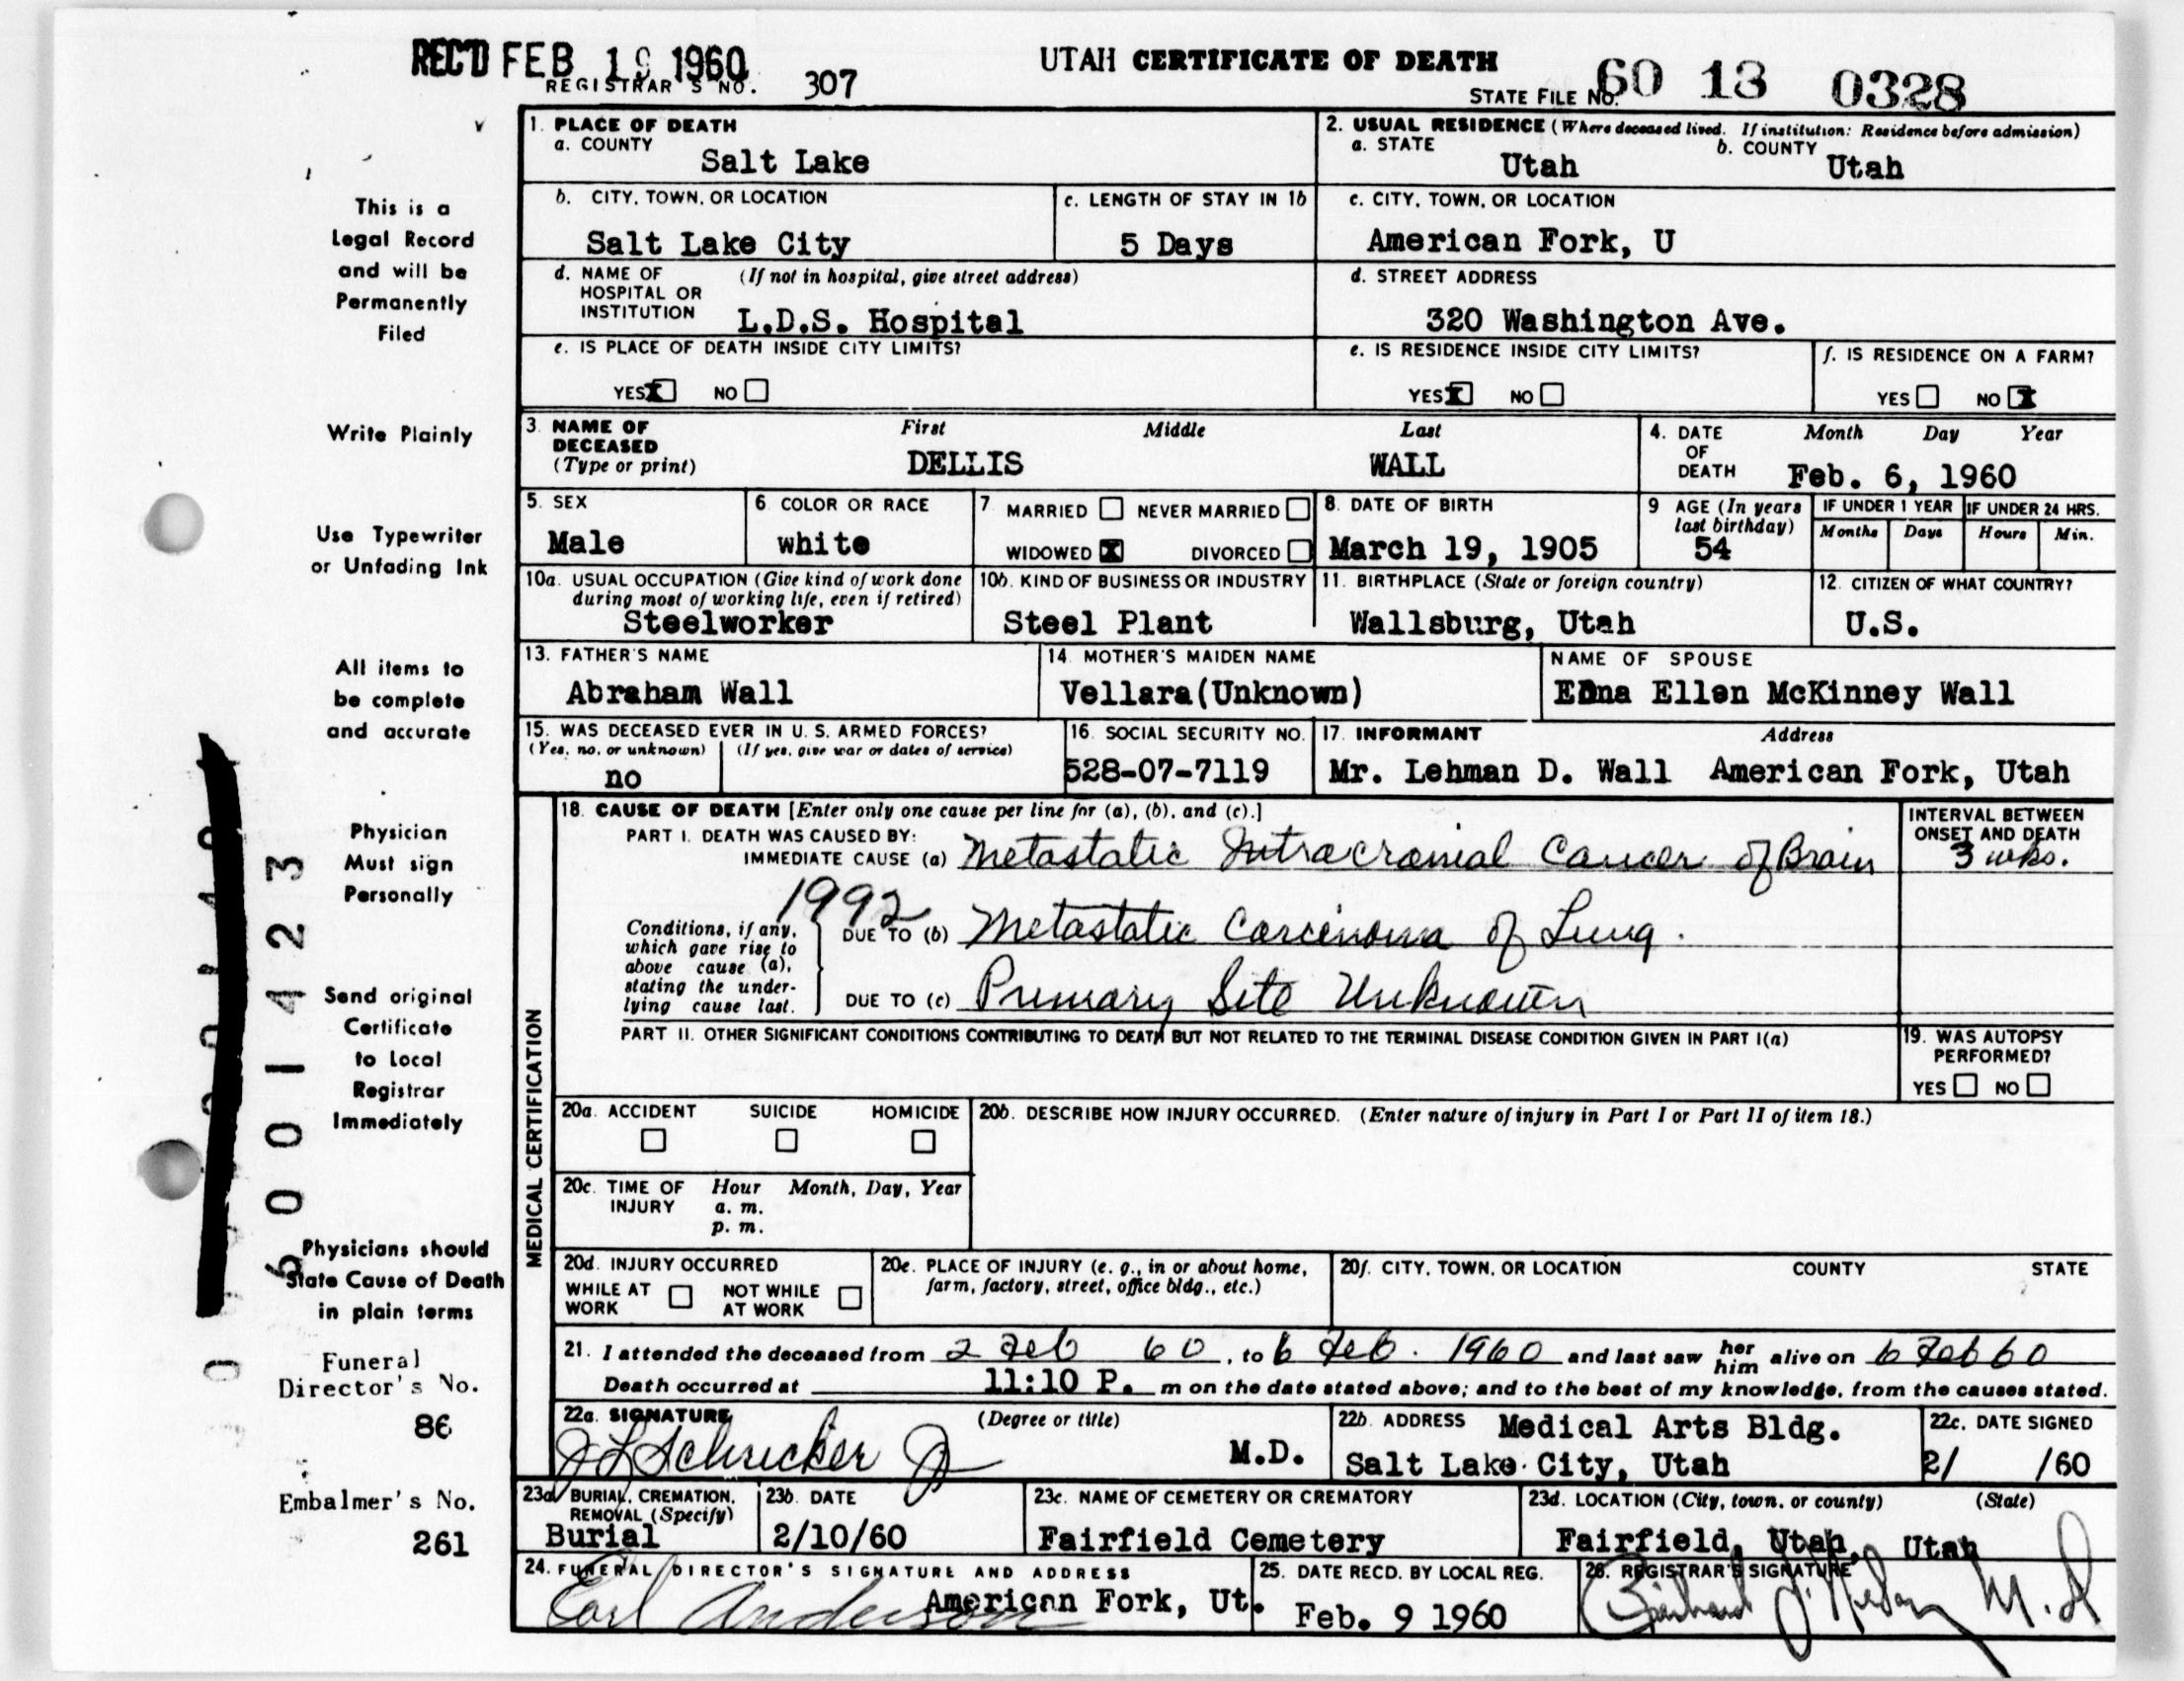 REC'D FEB 19 1960
UTAH CERTIFICATE OF DEATH
REGISTRAR'S NO. 307
STATE FILE NO. 60 18 0328
1. PLACE OF DEATH
a. COUNTY
Salt Lake
2. USUAL RESIDENCE (Where deceased lived. If institution: Residence before admission)
a. STATE b. COUNTY
Utah Utah
b. CITY, TOWN, OR LOCATION
Salt Lake City
c. LENGTH OF STAY IN 1b
5 Days
c. CITY, TOWN, OR LOCATION
American Fork, U
d. NAME OF (If not in hospital, give street address)
HOSPITAL OR
INSTITUTION L.D.S. Hospital
d. STREET ADDRESS
320 Washington Ave.
e. IS PLACE OF DEATH INSIDE CITY LIMITS?
YES X NO
e. IS RESIDENCE INSIDE CITY LIMITS?
YES X NO
f. IS RESIDENCE ON A FARM?
YES NO X
3. NAME OF DECEASED (Type or print)
First Middle Last
DELLIS WALL
4. DATE OF DEATH
Month Day Year
Feb. 6, 1960
5. SEX
Male
6. COLOR OR RACE
white
7. MARRIED NEVER MARRIED
WIDOWED X DIVORCED
8. DATE OF BIRTH
March 19, 1905
9. AGE (In years last birthday)
54
IF UNDER 1 YEAR IF UNDER 24 HRS.
Months Days Hours Min.
10a. USUAL OCCUPATION (Give kind of work done
during most of working life, even if retired)
Steelworker
10b. KIND OF BUSINESS OR INDUSTRY
Steel Plant
11. BIRTHPLACE (State or foreign country)
Wallsburg, Utah
12. CITIZEN OF WHAT COUNTRY?
U.S.
13. FATHER'S NAME
Abraham Wall
14. MOTHER'S MAIDEN NAME
Vellara(Unknown)
NAME OF SPOUSE
Edna Ellen McKinney Wall
15. WAS DECEASED EVER IN U. S. ARMED FORCES?
(Yes, no, or unknown) (If yes, give war or dates of service)
no
16. SOCIAL SECURITY NO.
528-07-7119
17. INFORMANT Address
Mr. Lehman D. Wall American Fork, Utah
MEDICAL CERTIFICATION
18. CAUSE OF DEATH [Enter only one cause per line for (a), (b), and (c).]
PART I. DEATH WAS CAUSED BY:
IMMEDIATE CAUSE (a) Metastatic Intracranial Cancer of Brain
INTERVAL BETWEEN
ONSET AND DEATH
3 wks.
1992
Conditions, if any,
which gave rise to
above cause (a),
stating the under-
lying cause last.
DUE TO (b) Metastatic Carcinoma of Lung.
DUE TO (c) Primary Site Unknown
PART II. OTHER SIGNIFICANT CONDITIONS CONTRIBUTING TO DEATH BUT NOT RELATED TO THE TERMINAL DISEASE CONDITION GIVEN IN PART I(a)
19. WAS AUTOPSY
PERFORMED?
YES NO
20a. ACCIDENT SUICIDE HOMICIDE
20b. DESCRIBE HOW INJURY OCCURRED. (Enter nature of injury in Part I or Part II of item 18.)
20c. TIME OF Hour Month, Day, Year
INJURY a. m.
p. m.
20d. INJURY OCCURRED
WHILE AT WORK NOT WHILE AT WORK
20e. PLACE OF INJURY (e. g., in or about home,
farm, factory, street, office bldg., etc.)
20f. CITY, TOWN, OR LOCATION COUNTY STATE
21. I attended the deceased from 2 Feb 60, to 6 Feb. 1960 and last saw her him alive on 6 Feb 60
Death occurred at 11:10 P. m on the date stated above; and to the best of my knowledge, from the causes stated.
22a. SIGNATURE (Degree or title)
J L Schricker Jr M.D.
22b. ADDRESS Medical Arts Bldg.
Salt Lake City, Utah
22c. DATE SIGNED
2/ /60
23a. BURIAL, CREMATION,
REMOVAL (Specify)
Burial
23b. DATE
2/10/60
23c. NAME OF CEMETERY OR CREMATORY
Fairfield Cemetery
23d. LOCATION (City, town, or county) (State)
Fairfield, Utah, Utah
24. FUNERAL DIRECTOR'S SIGNATURE AND ADDRESS
Earl Anderson American Fork, Ut.
25. DATE RECD. BY LOCAL REG.
Feb. 9 1960
26. REGISTRAR'S SIGNATURE
M.D
This is a
Legal Record
and will be
Permanently
Filed
Write Plainly
Use Typewriter
or Unfading Ink
All items to
be complete
and accurate
Physician
Must sign
Personally
Send original
Certificate
to Local
Registrar
Immediately
Physicians should
State Cause of Death
in plain terms
Funeral
Director's No.
86
Embalmer's No.
261
6001423